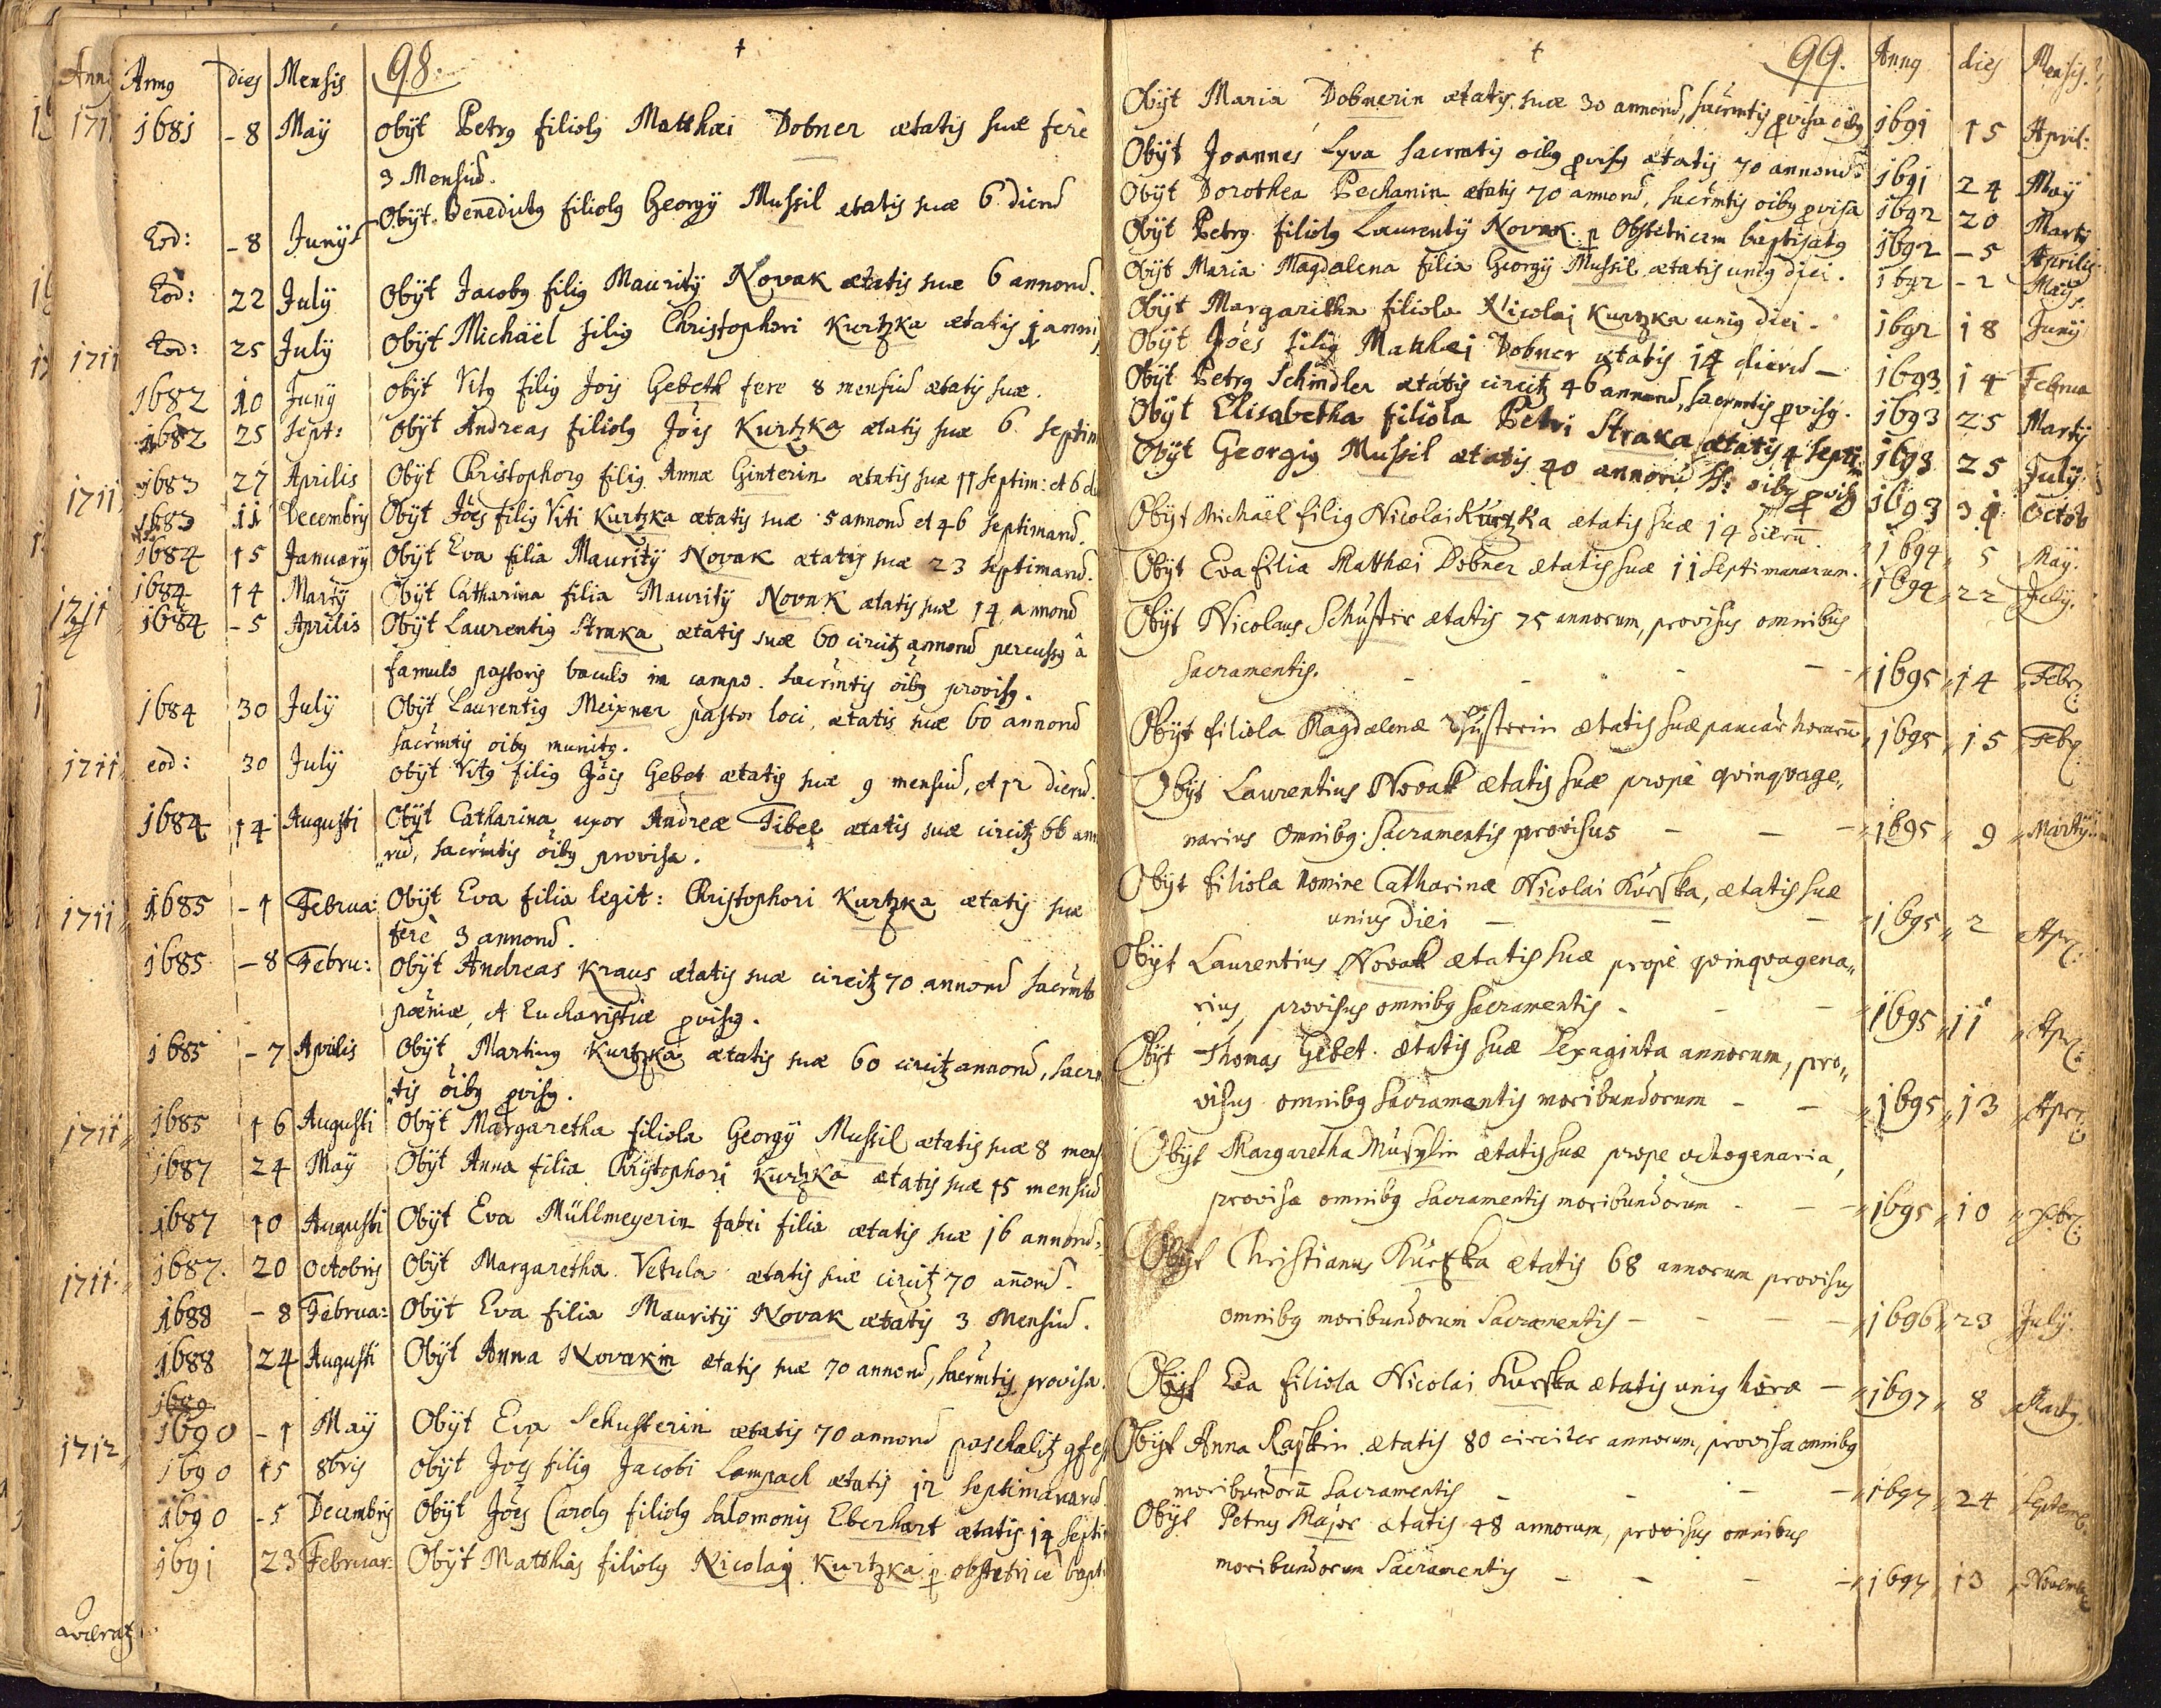 Anno dies Mensis 98.
1681 - 8 Maÿ Obÿt Petrg filiolg Matthæi Dobner ætatis suæ ferè
3 Mensiū.
Eod: - 8 Junÿ Obÿt Benedictg filiolg Georgÿ Mussil ætatis suæ 6 dierū
Eod: 22 Julÿ Obÿt Jacobg filig Mauritÿ Novak ætatis suæ 6 annorū.
Eod: 25 Julÿ Obÿt Michaël filig Christophori Kurtzka ætatis 1 anni
1682 10 Junÿ Obÿt Vitg filig Jois Gebeth fere 8 mensiū ætatis suæ.
1682 25 Sept: Obÿt Andreas filiolg Jois Kurtzka ætatis suæ 6 septim
1683 27 Aprilis Obÿt Christophorg filig Annæ Ginterin ætatis suæ 11 septim: et 6 di
1683 11 Decembris Obÿt Jões filig Viti Kurtzka ætatis suæ 5 annorū et 46 septimarū.
1684 15 Januarÿ Obÿt Eva filia Mauritÿ Novak ætatis suæ 23 septimarū.
1684 14 Martÿ Obÿt Catharina filia Mauritÿ Novak ætatis suæ 14 annorū
1684 - 5 Aprilis Obÿt Laurentig Straka ætatis suæ 60 circitz annorū percussg â
famulo pastoris baculo in campo. sacrmtis oibg provisg.
1684 30 Julÿ Obÿt Laurentig Meixner pastor loci, ætatis suæ 60 annorū
sacrmtis oibg munitg.
eod: 30 Julÿ Obÿt Vitg filig Jõis Gebet ætatis suæ 9 mensiū, et 12 dierū.
1684 14 Augusti Obÿt Catharina uxor Andreæ Tibel ætatis suæ circitz 66 ann
rū, sacrmtis oibg provisa.
1685 - 1 Februa: Obÿt Eva filia legit: Christophori Kurtzka ætatis suæ
ferè 3 annorū.
1685 - 8 Febru: Obÿt Andreas Kraus ætatis suæ circitz 70 annorū sacrmto
pœniæ, et Eucharistiæ pvisg.
1685 - 7 Aprilis Obÿt Marting Kurtzka ætatis suæ 60 circitz annorū, sacrm
tis oibg pvisg.
1685 16 Augusti Obÿt Margaretha filiola Georgÿ Mussil ætatis suæ 8 mens
1687 24 Maÿ Obÿt Anna filia Christophori Kurtzka ætatis suæ 15 mensiū
1687 10 Augusti Obÿt Eva Müllmeyerin fabri filia ætatis suæ 16 annorū.
1687. 20 Octobris Obÿt Margaretha Vetula ætatis suæ circitz 70 añorū.
1688 - 8 Februa: Obÿt Eva filia Mauritÿ Novak ætatis 3 Mensiū.
1688 24 Augusti Obÿt Anna Novakin ætatis suæ 70 annorū, sacrmtis provisa.
1689
1690 - 1 Maÿ Obÿt Eva Schusterin ætatis 70 annorū paschalitz gfess
1690 15 8bris Obÿt Jões filig Jacobi Lampach ætatis 12 septimanarū.
1690 - 5 Decembris Obÿt Jões Carolg filiolg Salomonis Eberhart ætatis 14 septi
1691 23 Februar: Obÿt Matthias filiolg Nicolaÿ Kurtzka p obstetricē bapt
99. Anno dies Mensis.
Obÿt Maria Dobnerin ætatis suæ 30 annorū, sacrmtis pvisa oibg 1691 15 April:
Obÿt Joannes Lyva sacrmtis oibg pvisg ætatis 70 annorū. 1691 24 Maÿ
Obÿt Dorothea Pechanin ætatis 70 annorū, sacrmtis oibg pvisa 1692 20 Martÿ
Obÿt Petrg filiolg Laurentÿ Novak p Obstetricem baptisatg 1692 - 5 Aprilis
Obÿt Maria Magdalena filia Georgÿ Mussil ætatis unig diei. 1692 - 2 Maÿ.
Obÿt Margaritha filiola Nicolai Kurtzka unig diei. 1692 18 Junÿ
Obÿt Jões filig Matthæi Dobner ætatis 14 dierū — 1693 14 Februa
Obÿt Petrg Schindler ætatis circitz 46 annorū, sacrmtis pvisg. 1693 25 Martÿ
Obÿt Elisabetha filiola Petri Straka ætatis 4 septi 1693 25 Julÿ.
Obÿt Georgig Mussil ætatis 40 annorū SS: oibg pvisg 1693 31 Octob
Obÿt Michaël filig Nicolai Kurtzka ætatis suæ 14 dierū. 1694 5 Maÿ.
Obÿt Eva filia Matthæi Dobner ætatis suæ 11 septimanarum. 1694 22 Julÿ.
Obÿt Nicolaus Schuster ætatis 75 annorum, provisus omnibus
sacramentis. - - - 1695 14 Febr:
Obÿt filiola Magdalenæ Schusterin ætatis suæ paucar horarū 1695 15 Febr:
Obÿt Laurentius Novak ætatis suæ propè qvinqvage,,
narius omnibg sacramentis provisus — — — 1695 9 Martÿ
Obÿt filiola nomine Catharinæ Nicolai Kurska, ætatis suæ
unius diei — — — 1695 2 Apr:
Obÿt Laurentius Novak ætatis suæ propè qvinqvagena,,
rius, provisus omnibg sacramentis - - - 1695 11 Apr:
Obÿt Thomas Gebet ætatis suæ sexaginta annorum, pro,,
visus omnibg sacramentis moribundorum — — 1695 13 Apr:
Obÿt Margaretha Musylin ætatis suæ prope octogenaria,
provisa omnibg sacramentis moribundorum - - 1695 10
Obÿt Christianus Kurzka ætatis 68 annorum provisus
omnibg moribundorum sacramentis - - - 1696 23 Julÿ.
Obÿt Eva filiola Nicolai Kurska ætatis unig horæ — 1697 8 Martÿ
Obÿt Anna Raskin ætatis 80 circiter annorum, provisa omnibg
moribundorū sacramentis - - - 1697 24 Septemb.
Obÿt Petrus Major ætatis 48 annorum, provisus omnibus
moribundorum sacramentis - - - 1697 13 Novemb